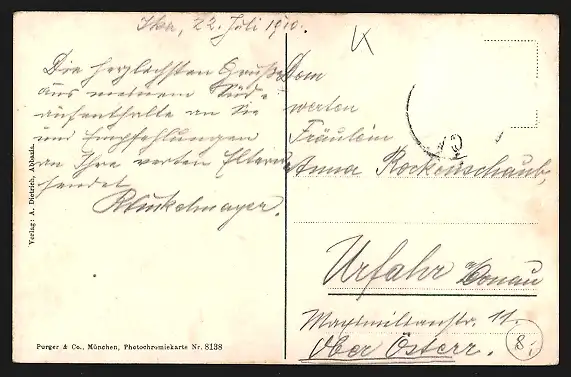 Ika, 22. Juli 1910.
Die herzlichsten Grüße
aus meinem Süd-
aufenthalte an Sie
und Empfehlungen
an Ihre werten Eltern
sendet
Winkelmayer.
Dem
werten
Fräulein
Anna Rockenschaub,
Urfahr a/Donau
Maximilianstr. 11.
Ober Österr.
8,-
Verlag: A. Dietrich, Abbazia.
Purger & Co., München, Photochromiekarte Nr. 8138